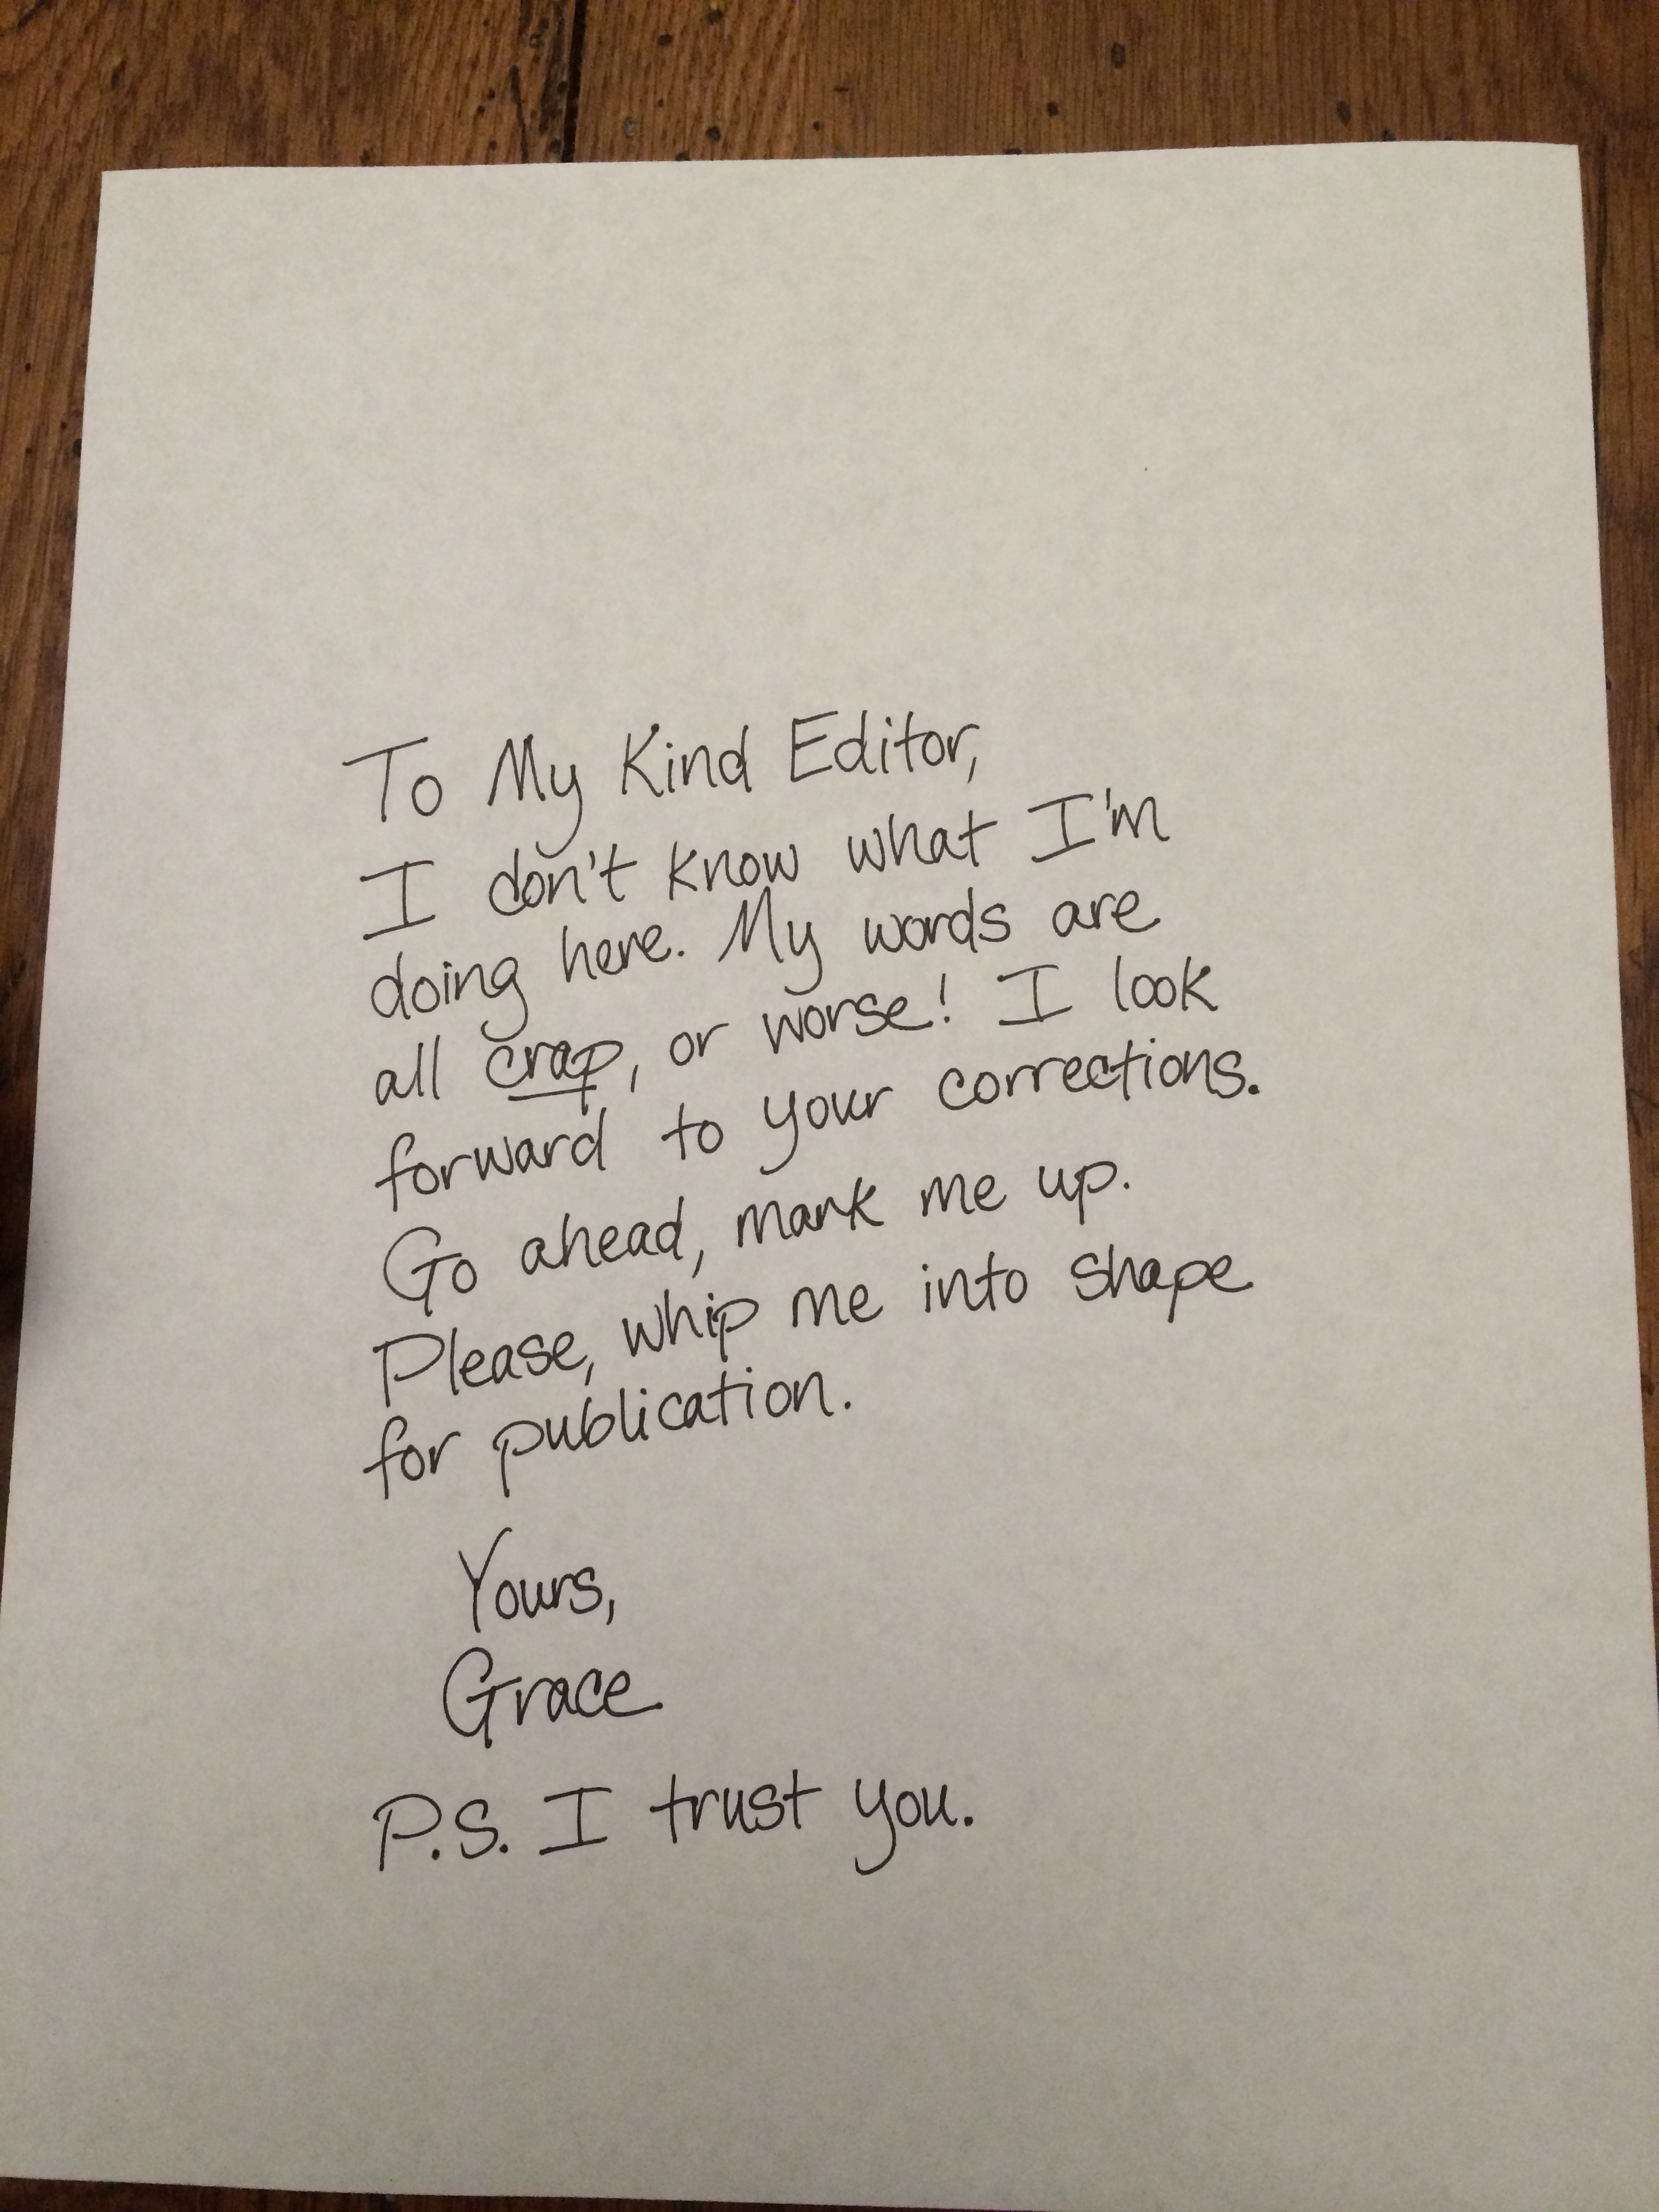 To My Kind Editor,
I don't know what I'm
doing here. My words are
all crap, or worse! I look
forward to your corrections.
Go ahead, mark me up.
Please, whip me into shape
for publication.
Yours,
Grace
P.S. I trust you.